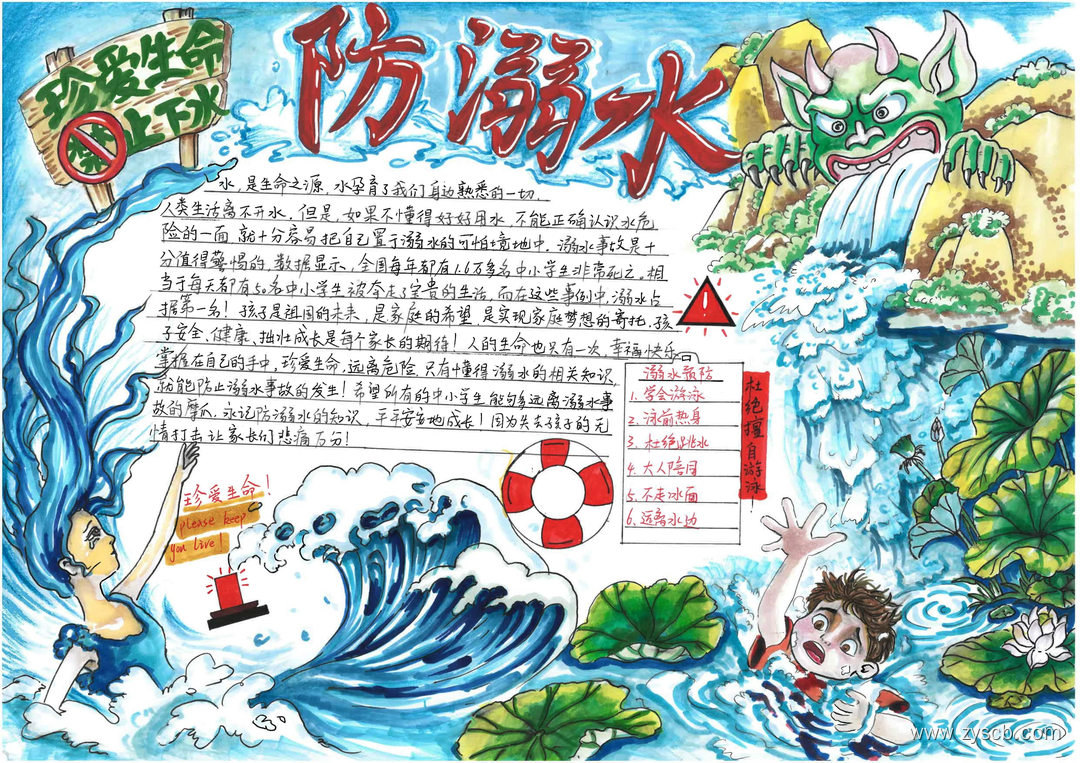 防溺水
珍爱生命
禁止下水
水,是生命之源,水孕育了我们身边熟悉的一切.
人类生活离不开水,但是,如果不懂得好好用水,不能正确认识水危
险的一面,就十分容易把自己置于溺水的可怕境地中,溺水事故是十
分值得警惕的,数据显示,全国每年都有1.6万多名中小学生非常死亡,相
当于每天都有50名中小学生被夺走了宝贵的生活,而在这些事例中,溺水占
据第一名!孩子是祖国的未来,是家庭的希望,是实现家庭梦想的寄托,孩
子安全、健康、拙壮成长是每个家长的期待!人的生命也只有一次,幸福快乐
掌握在自己的手中,珍爱生命,远离危险,只有懂得溺水的相关知识,
就能防止溺水事故的发生!希望所有的中小学生能够多远离溺水事
故的魔爪,永记防溺水的知识,平平安安地成长!因为失去孩子的无
情打击让家长们悲痛万分!
溺水预防
1.学会游泳
2.泳前热身
3.杜绝跳水
4.大人陪同
5.不走冰面
6.远离水边
杜绝擅自游泳
珍爱生命!
please keep
you live!
www.zyscb.com